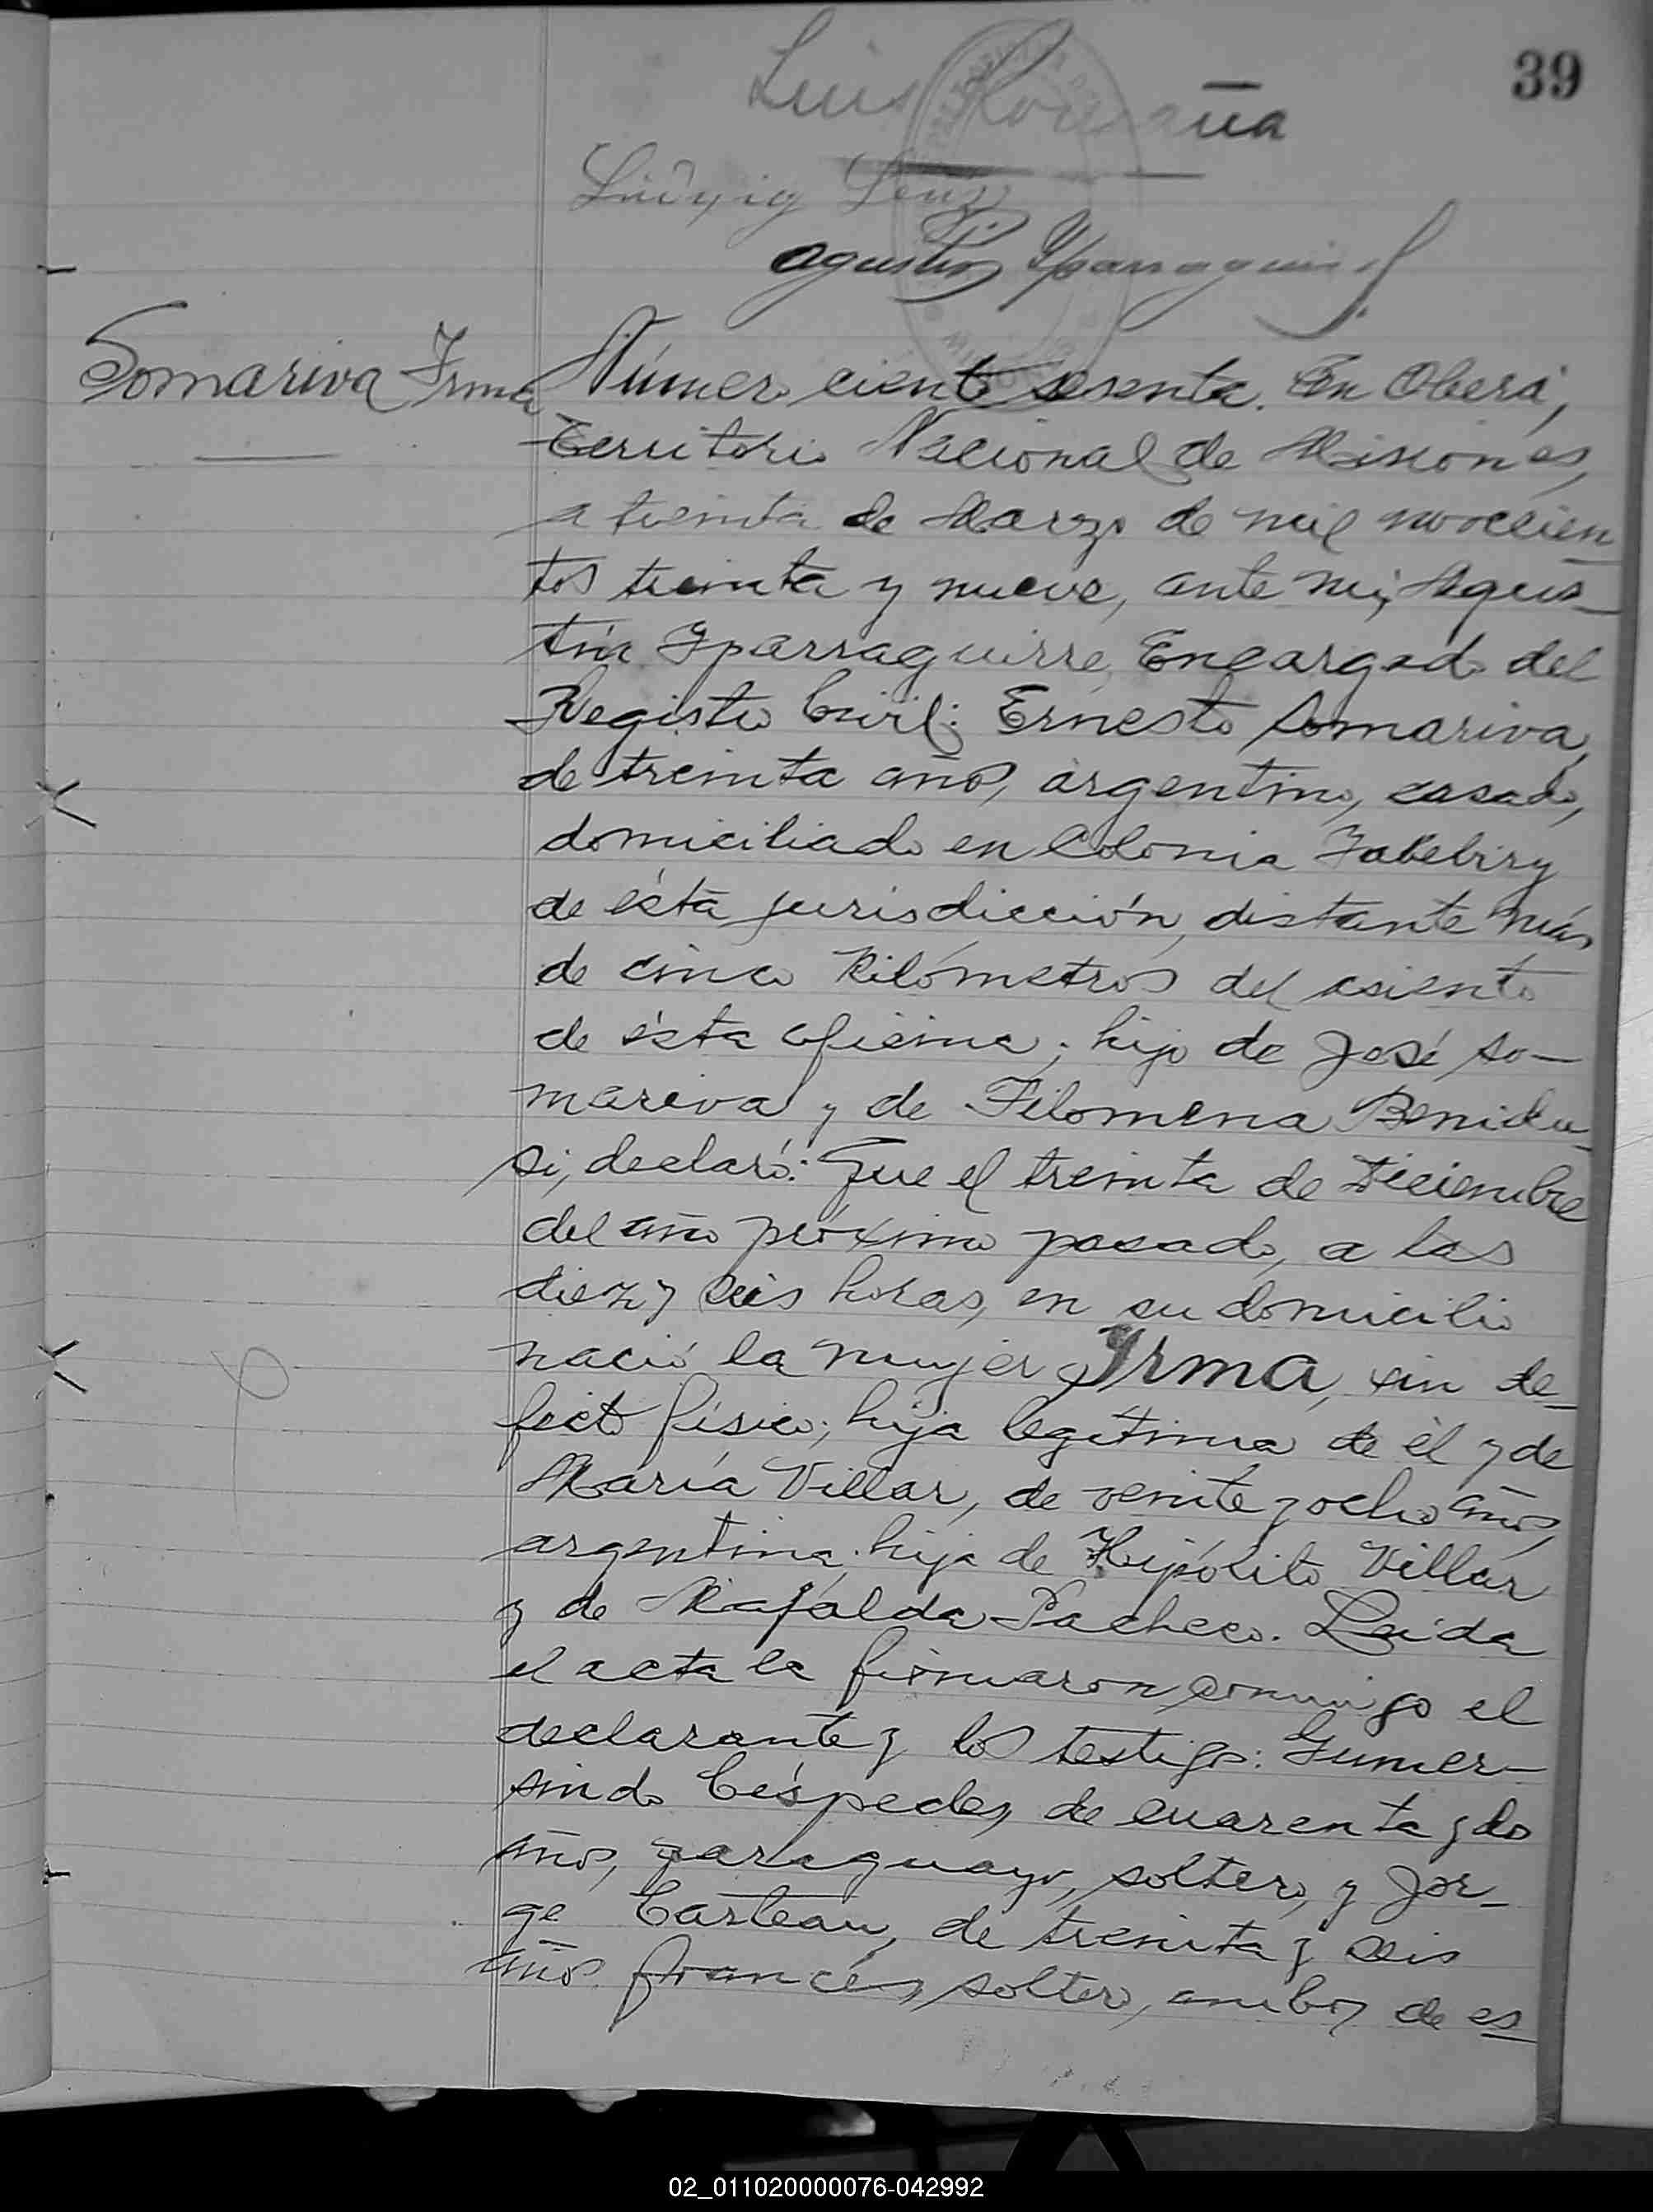 39
Luis
Ludwig Lenz
Agustin Yparraguirre
Somariva Irma
Número ciento sesenta. En Oberá,
Territorio Nacional de Misiones,
a treinta de Marzo de mil novecien-
tos treinta y nueve, ante mi, Agus-
tín Yparraguirre, Encargado del
Registro Civil; Ernesto Somariva,
de treinta años, argentino, casado,
domiciliado en Colonia Yabebiry
de ésta jurisdicción, distante más
de cinco kilómetros del asiento
de ésta oficina; hijo de José So-
mariva y de Filomena Benidu-
si, declaró: Que el treinta de Diciembre
del año próximo pasado, a las
diez y seis horas, en su domicilio
nació la mujer Yrma, sin de-
fecto físico; hija legítima de él y de
María Villar, de veinte y ocho años,
argentina, hija de Hipólito Villar
y de Mafalda Pacheco. Leída
el acta la firmaron conmigo el
declarante y los testigos: Gumer-
sindo Céspedes, de cuarenta y dos
años, paraguayo, soltero, y Jor-
ge Carteau, de treinta y seis
años francés, soltero, ambos de es-
02_011020000076-042992